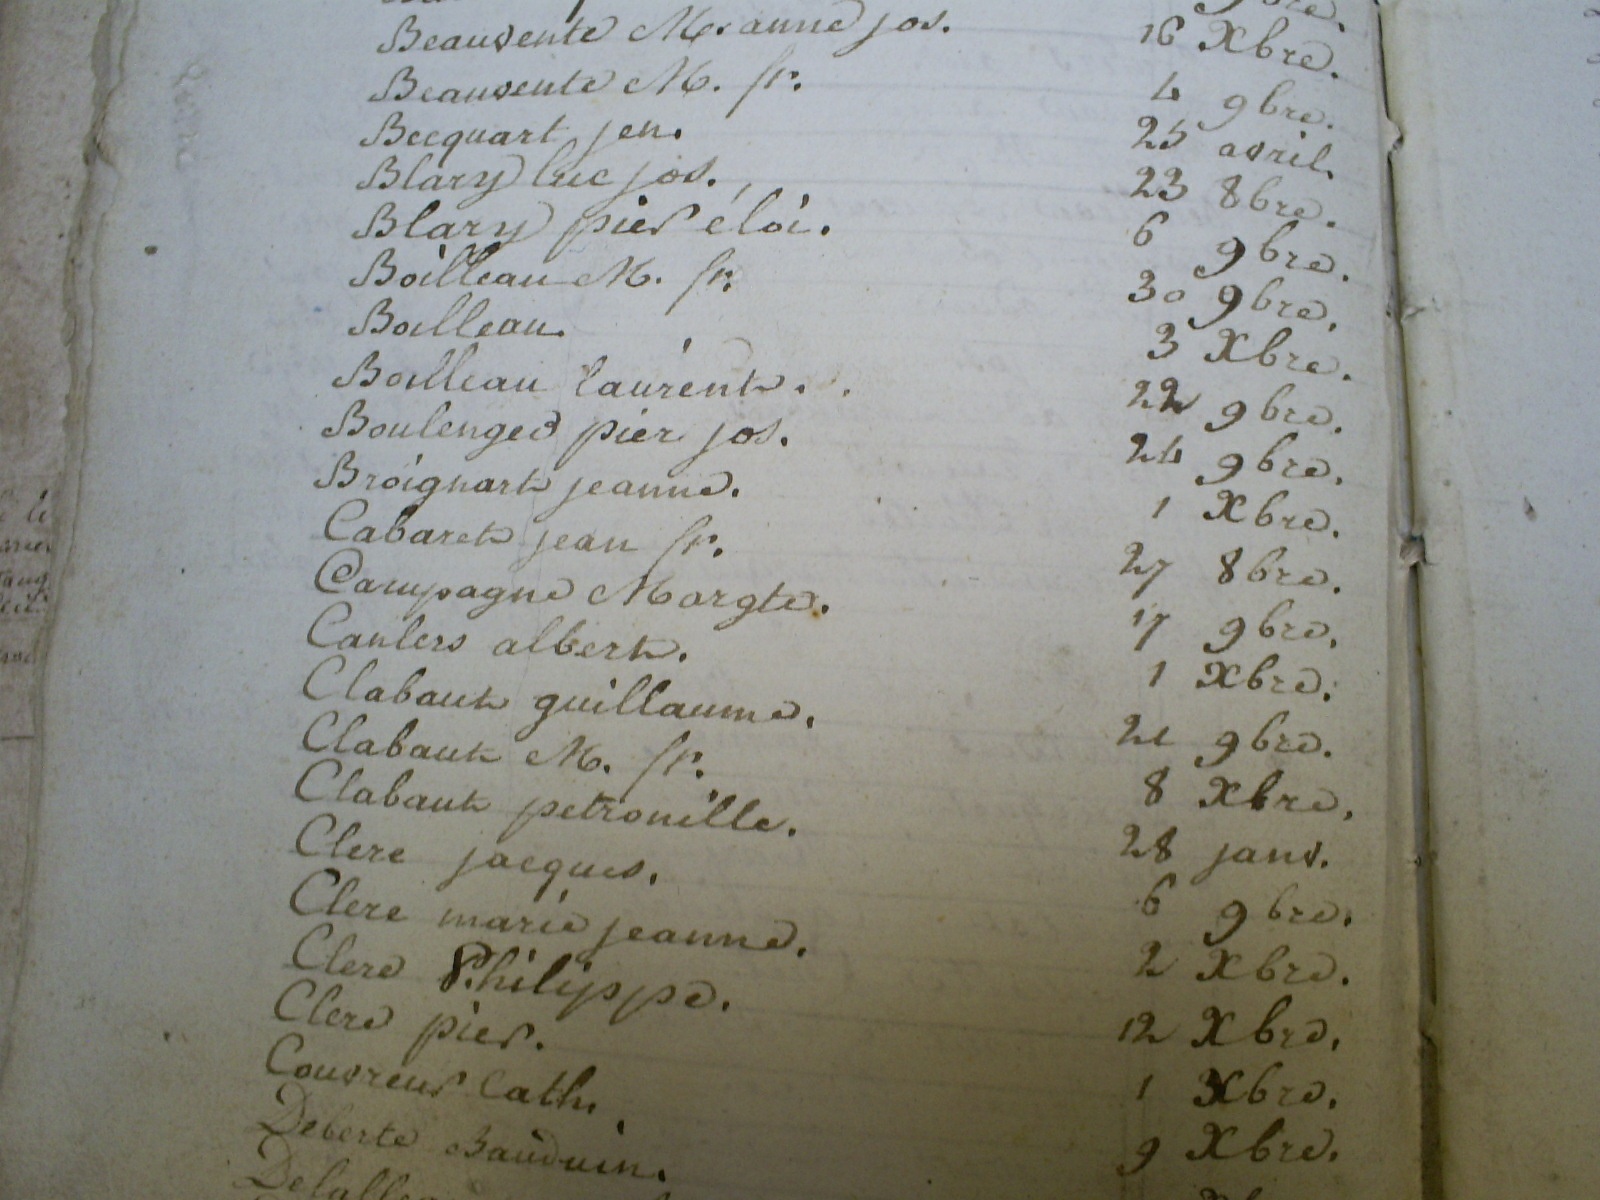 9bre.
Beauvente M. anne jos. 16 Xbre.
Beauvente M. fr. 4 9bre.
Becquart jen. 25 avril.
Blary luc jos. 23 8bre.
Blary pier éloi. 6 9bre.
Boilleau M. fr. 30 9bre.
Boilleau. 3 Xbre.
Boilleau laurent. 22 9bre.
Boulenger pier jos. 24 9bre.
Broignart jeanne. 1 Xbre.
Cabaret jean fr. 27 8bre.
Campagne Margte. 17 9bre.
Canlers albert. 1 Xbre.
Clabaut guillaume. 21 9bre.
Clabaut M. fr. 8 Xbre.
Clabaut petronille. 28 janv.
Clere jacques. 6 9bre.
Clere marie jeanne. 2 Xbre.
Clere Philippe. 12 Xbre.
Clere pier. 1 Xbre.
Couvreur Cath. 9 Xbre.
Deberte Bauduin.